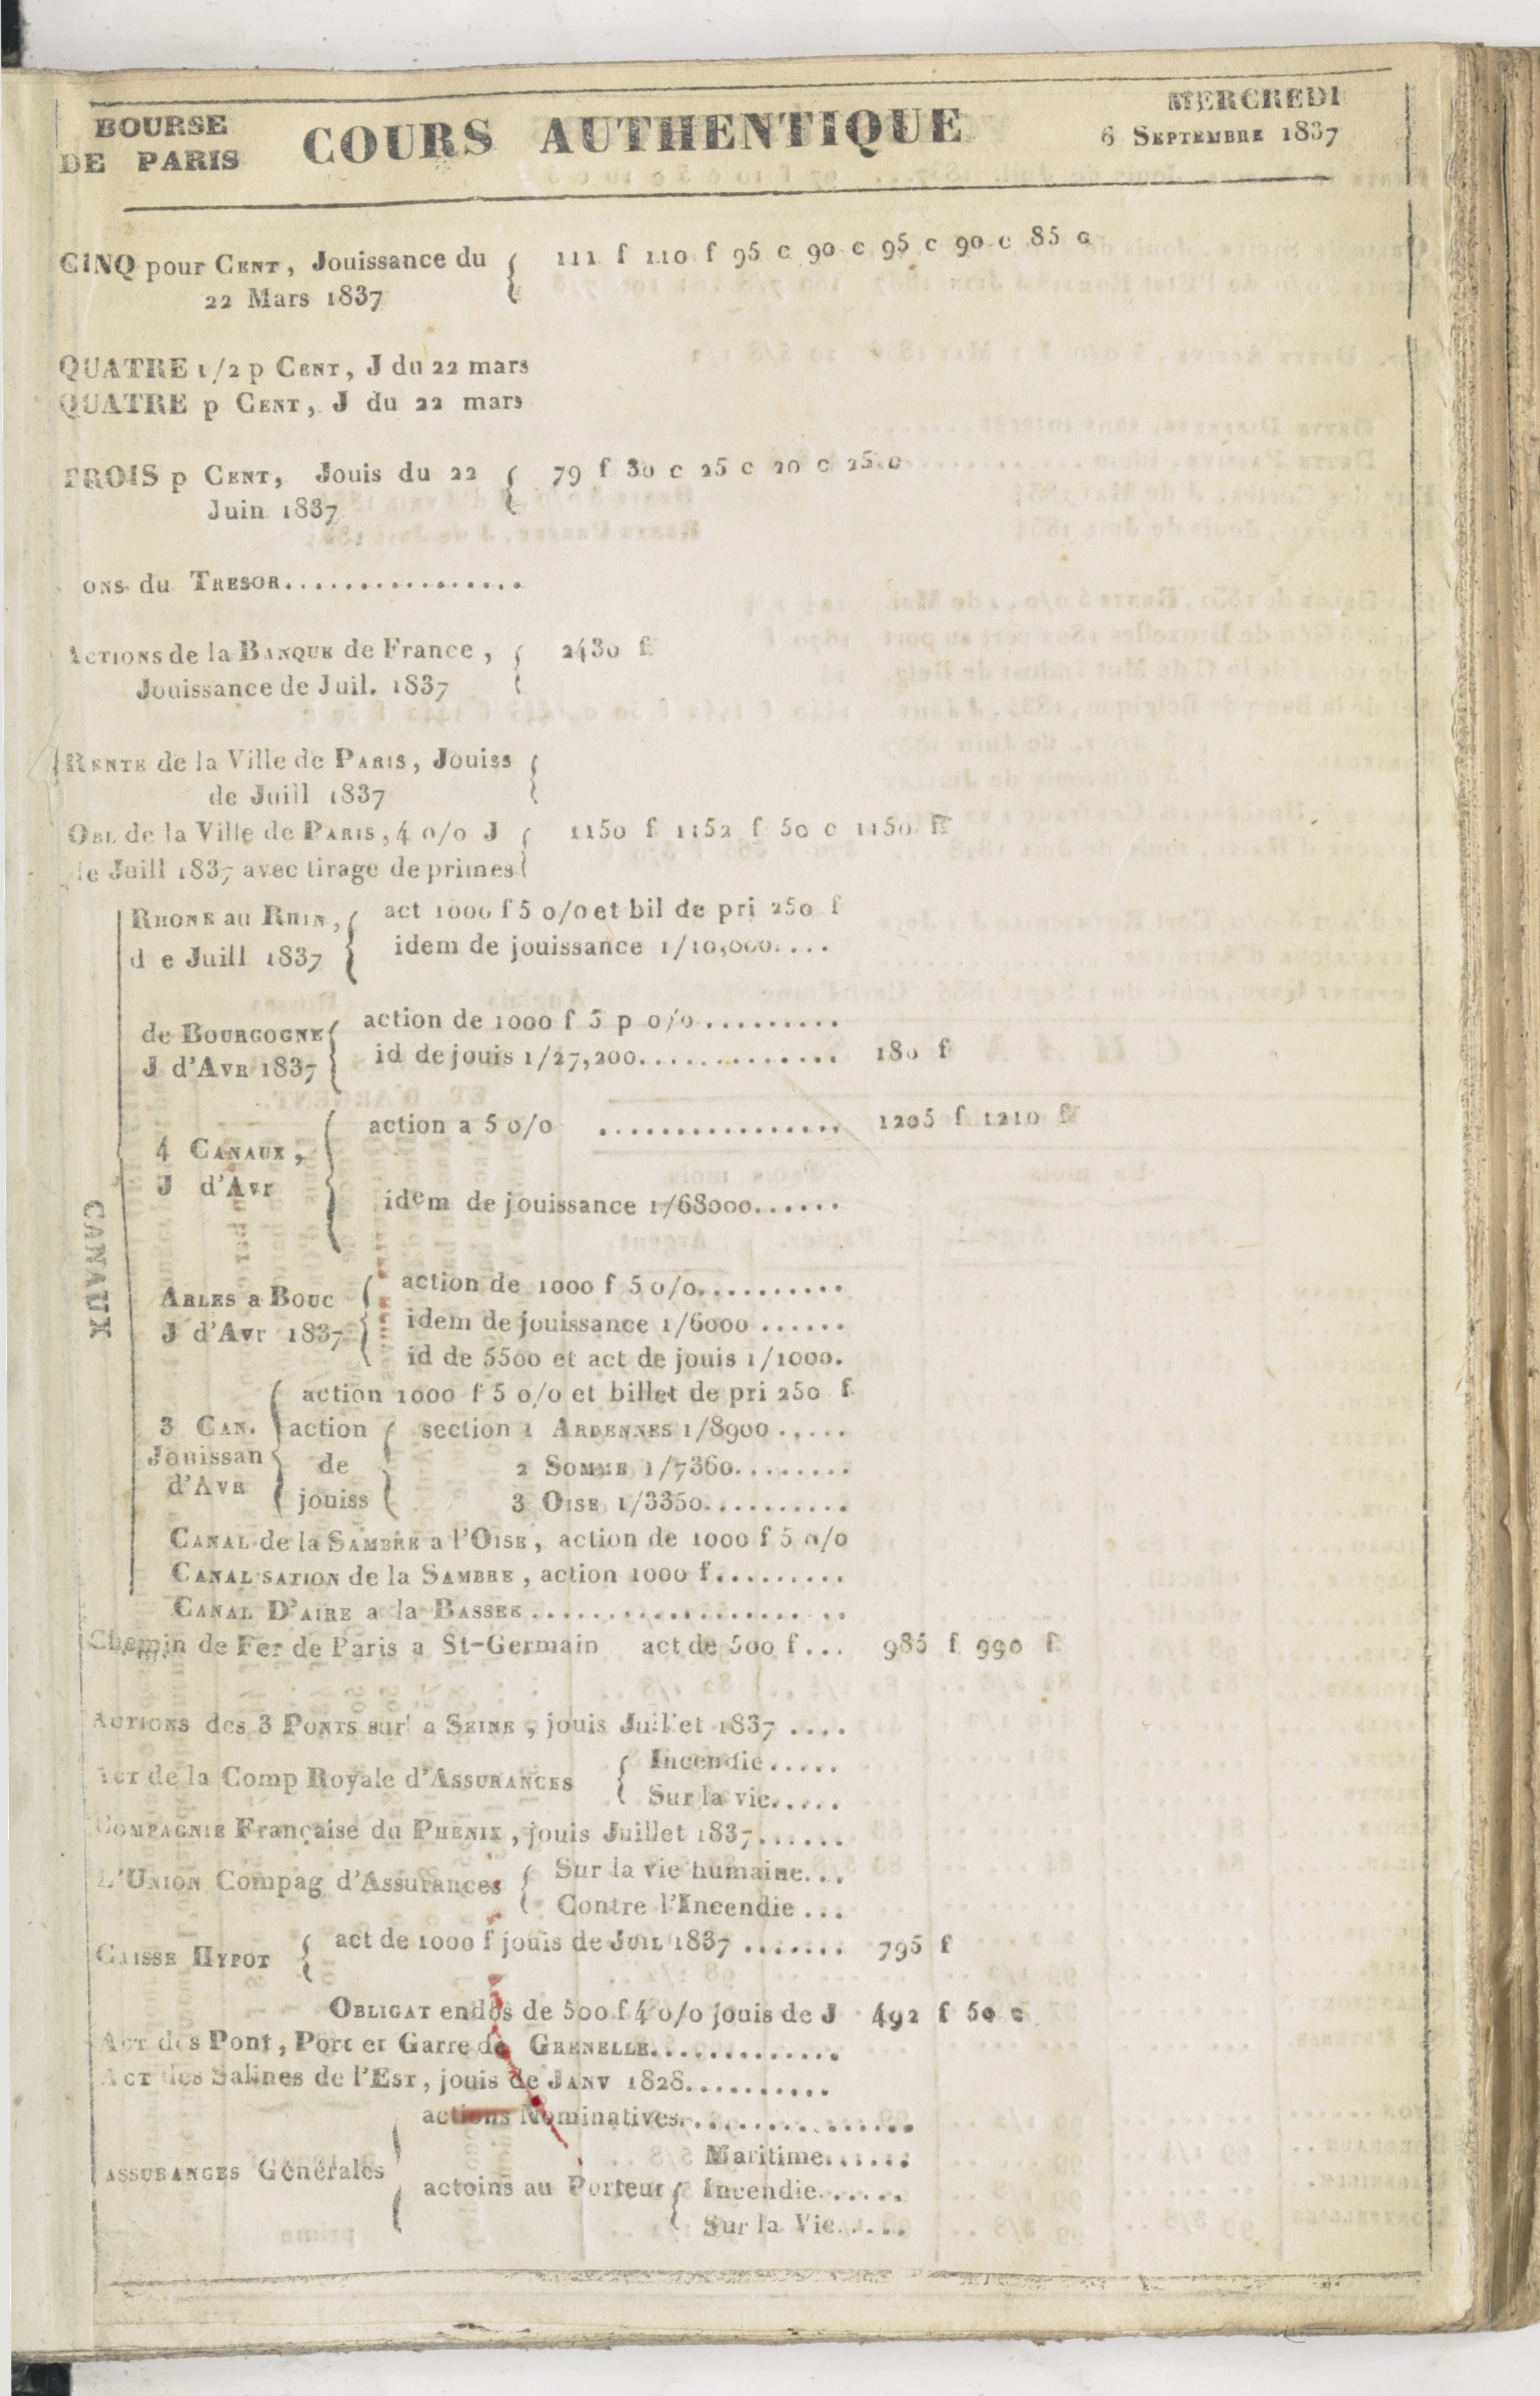 BOURSE
DE PARIS
COURS AUTHENTIQUE
MERCREDI
6 SEPTEMBRE 1837
CINQ pour CENT, Jouissance du
22 Mars 1837
111 f 110 f 95 c 90 c 95 c 90 c 85 c
QUATRE 1/2 p CENT, J du 22 mars
QUATRE p CENT, J du 22 mars
TROIS p CENT, Jouis du 22
Juin 1837
79 f 30 c 25 c 20 c 25 c
ONS du TRESOR................
ACTIONS de la BANQUE de France,
Jouissance de Juil. 1837
2430 f
RENTE de la Ville de PARIS, Jouiss
de Juill 1837
OBL de la Ville de PARIS, 4 0/0 J
de Juill 1837 avec tirage de primes
1150 f 1152 f 50 c 1150 f
CANAUX
RHONE au RHIN,
d e Juill 1837
act 1000 f 5 0/0 et bil de pri 250 f
idem de jouissance 1/10,000....
de BOURGOGNE
J d'AVR 1837
action de 1000 f 5 p 0/0.........
id de jouis 1/27,200............. 180 f
4 CANAUX,
J d'Avr
action a 5 0/0 ................ 1205 f 1210 f
idem de jouissance 1/68000......
ARLES a BOUC
J d'Avr 1837
action de 1000 f 5 0/0..........
idem de jouissance 1/6000......
id de 5500 et act de jouis 1/1000.
3 CAN.
Jouissan
d'AVR
action 1000 f 5 0/0 et billet de pri 250 f
action
de
jouiss
section 1 ARDENNES 1/8900.....
2 SOMME 1/7360........
3 OISE 1/3350..........
CANAL de la SAMBRE a l'OISE, action de 1000 f 5 0/0
CANAL SATION de la SAMBRE, action 1000 f.........
CANAL D'AIRE a la BASSEE.................. ..
Chemin de Fer de Paris a St-Germain act de 500 f... 985 f 990 f
ACTIONS des 3 PONTS sur l a SEINE, jouis Juillet 1837 ....
Act de la Comp Royale d'ASSURANCES
Incendie.....
Sur la vie.....
COMPAGNIE Française du PHENIX, jouis Juillet 1837......
L'UNION Compag d'Assurances
Sur la vie humaine...
Contre l'Incendie ...
CAISSE HYPOT
act de 1000 f jouis de JUIL 1837 ....... 795 f
OBLIGAT endos de 500 f 4 0/0 jouis de J 492 f 50 c
ACT des Pont, Port et Garre de GRENELLE.............
ACT des Salines de l'EST, jouis de JANV 1828..........
ASSURANCES Générales
actions Nominatives...............
actoins au Porteur
Maritime......
Incendie......
Sur la Vie.....